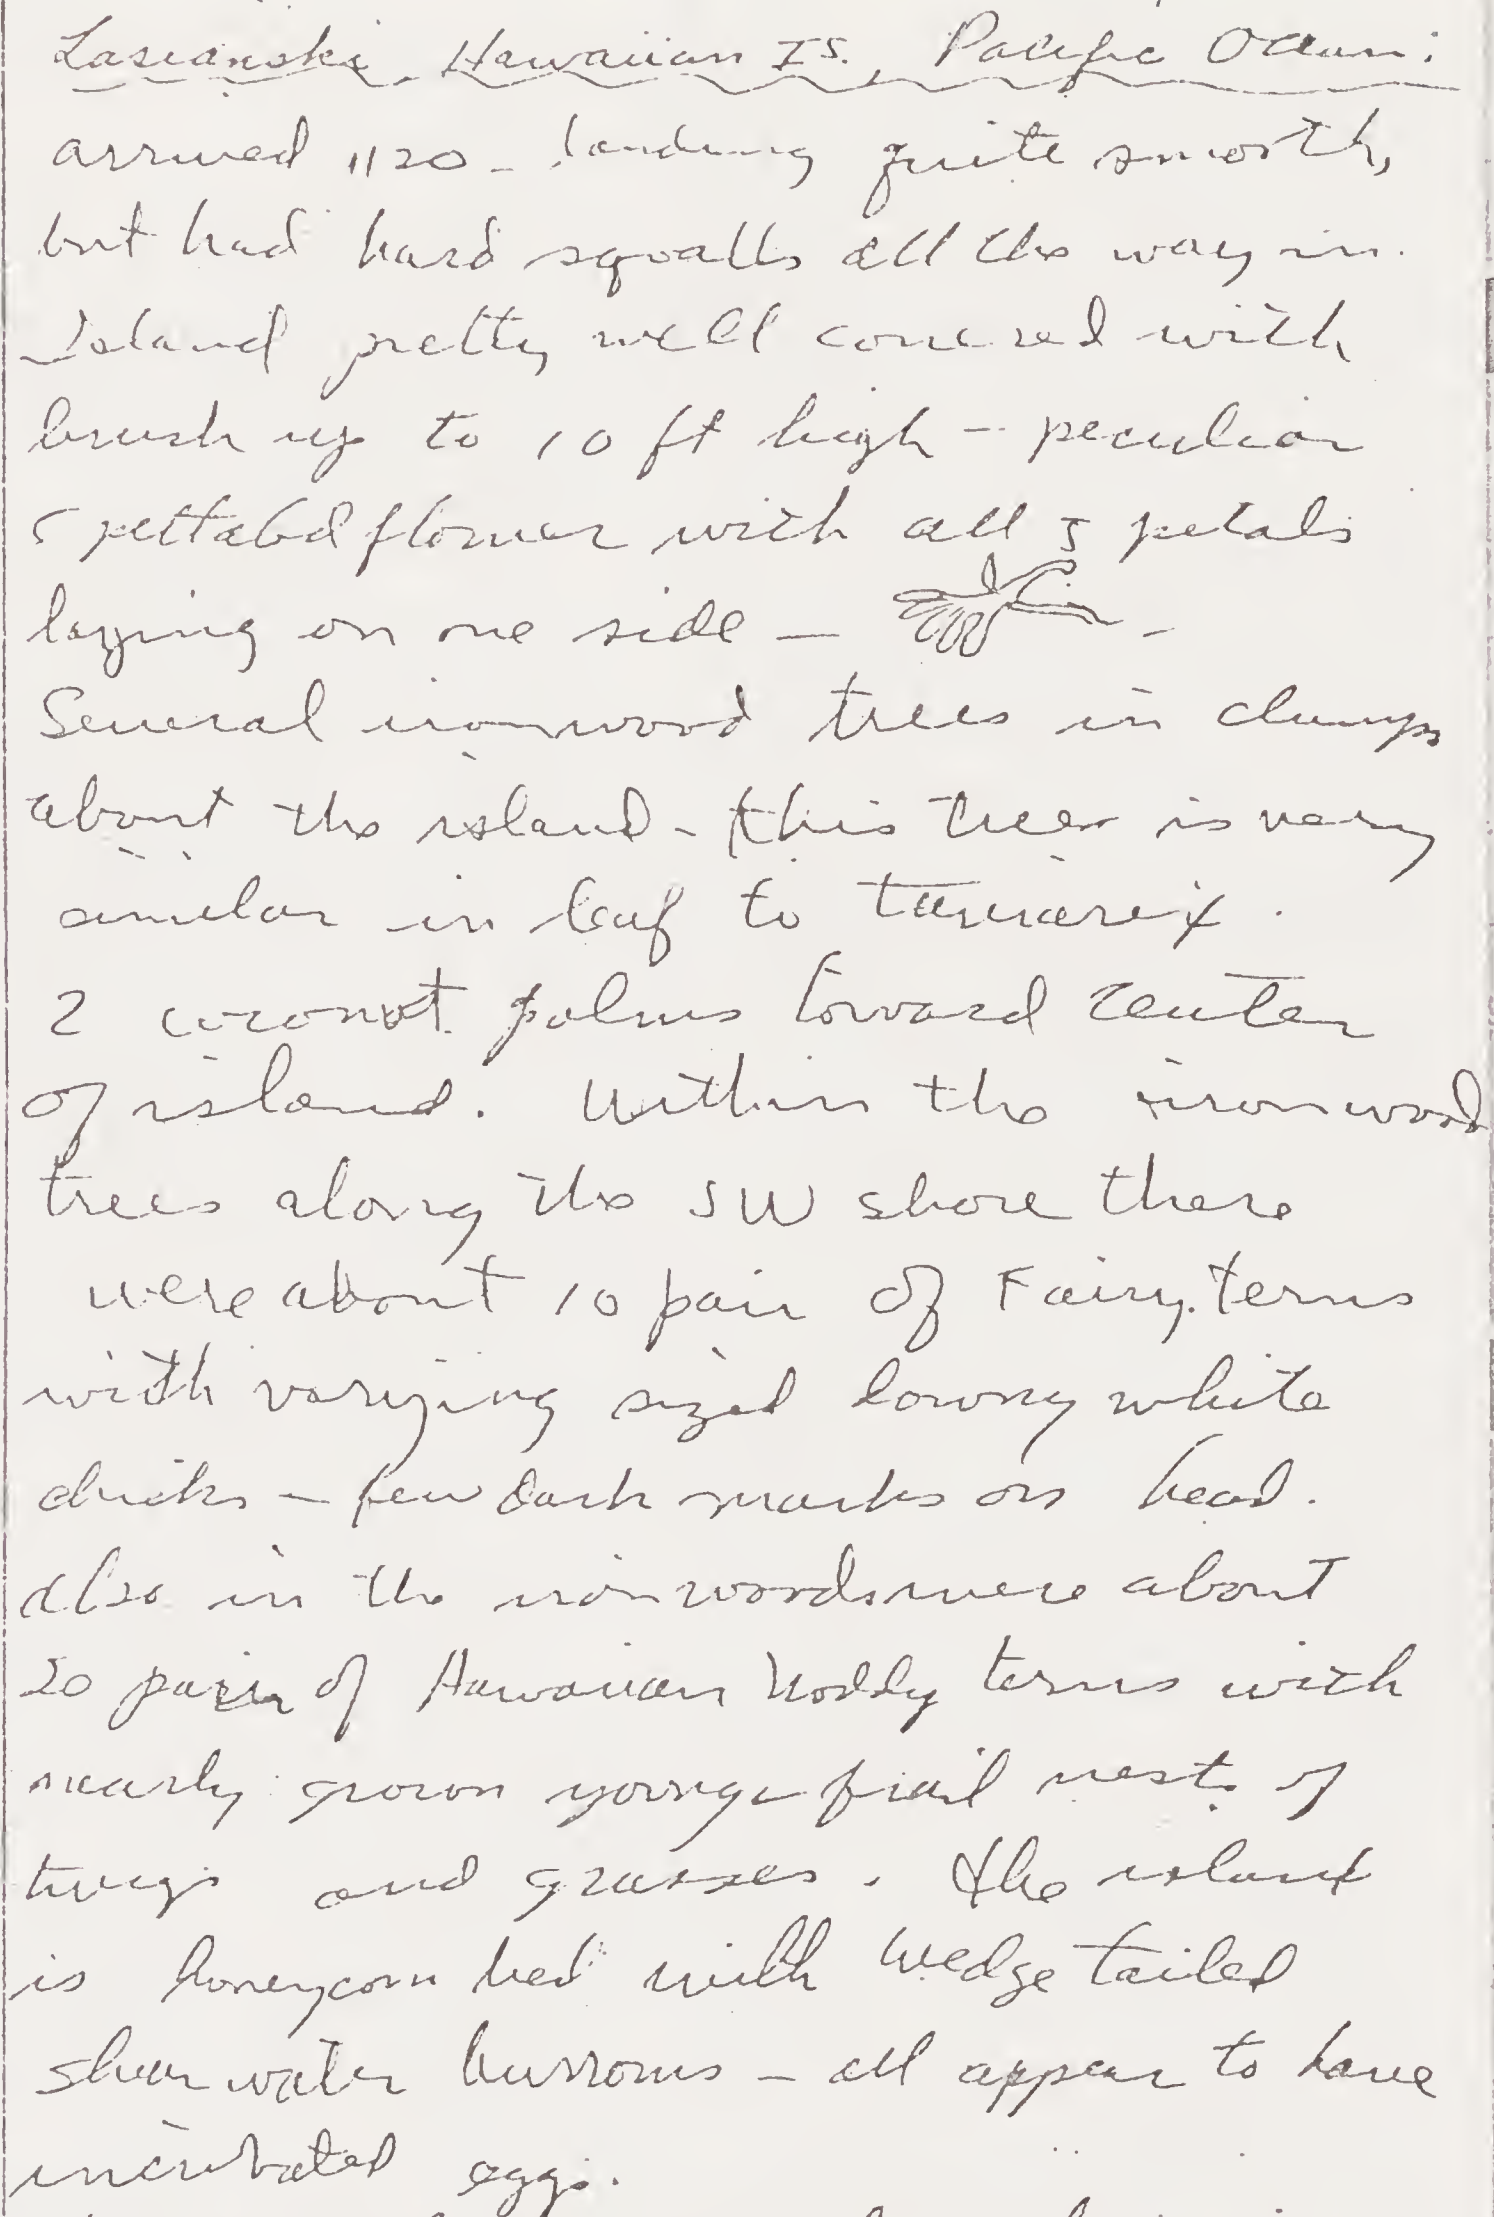 Lasianski, Hawaiian Is., Pacific Ocean:
arrived 1120 - landing quite smooth,
but had hard squalls all the way in.
Island pretty well covered with
brush up to 10 ft high - peculiar
5 pettabd flower with all 5 petals
laying on one side -
Several ironwood trees in clumps
about the island - this tree is very
similar in leaf to tamarix.
2 coconut palms toward center
of island. Within the ironwood
trees along the SW shore there
were about 10 pair of Fairy terns
with varying sized downy white
chicks - few dark marks on head.
also in the ironwoods were about
20 pair of Hawaiian Noddy terns with
nearly grown young frail nests of
twigs and grasses. The island
is honeycombed with wedge tailed
shearwater burrows - all appear to have
incubated eggs.